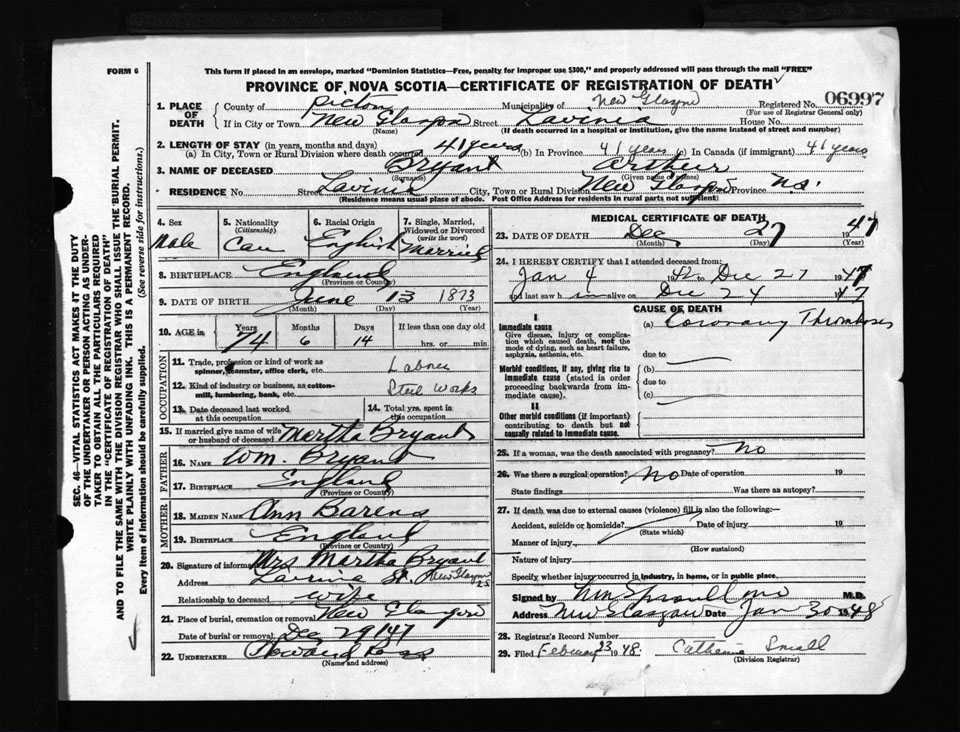 FORM 6
This form if placed in an envelope, marked "Dominion Statistics—Free, penalty for improper use $300," and properly addressed will pass through the mail "FREE"
PROVINCE OF NOVA SCOTIA—CERTIFICATE OF REGISTRATION OF DEATH
SEC. 46—VITAL STATISTICS ACT MAKES IT THE DUTY
OF THE UNDERTAKER OR PERSON ACTING AS UNDER-
TAKER TO OBTAIN ALL THE PARTICULARS REQUIRED
IN THE "CERTIFICATE OF REGISTRATION OF DEATH"
AND TO FILE THE SAME WITH THE DIVISION REGISTRAR WHO SHALL ISSUE THE BURIAL PERMIT.
WRITE PLAINLY WITH UNFADING INK. THIS IS A PERMANENT RECORD.
Every item of Information should be carefully supplied. (See reverse side for instructions.)
1. PLACE OF DEATH County of Pictou Municipality of New Glasgow Registered No. 06997
(For use of Registrar General only)
If in City or Town New Glasgow Street Lavinia House No.
(Name) (If death occurred in a hospital or institution, give the name instead of street and number)
2. LENGTH OF STAY (in years, months and days)
(a) In City, Town or Rural Division where death occurred 41 years (b) In Province 41 years (c) In Canada (if immigrant) 41 years
3. NAME OF DECEASED Bryant Arthur
(Surname) (Given name or names)
RESIDENCE No. Street Lavinia City, Town or Rural Division New Glasgow Province N.S.
(Residence means usual place of abode. Post Office Address for residents in rural parts not sufficient)
4. Sex Male
5. Nationality (Citizenship) Can
6. Racial Origin English
7. Single, Married, Widowed or Divorced (write the word) Married
8. BIRTHPLACE England
(Province or County)
9. DATE OF BIRTH June 13 1873
(Month) (Day) (Year)
10. AGE in Years 74 Months 6 Days 14 If less than one day old hrs. or min.
OCCUPATION
11. Trade, profession or kind of work as spinner, teamster, office clerk, etc. Laborer
12. Kind of industry or business, as cotton-mill, lumbering, bank, etc. Steel Works
13. Date deceased last worked at this occupation
14. Total yrs. spent in this occupation
15. If married give name of wife or husband of deceased Martha Bryant
FATHER
16. NAME Wm. Bryant
17. BIRTHPLACE England
(Province or Country)
MOTHER
18. MAIDEN NAME Ann Barens
19. BIRTHPLACE England
(Province or Country)
20. Signature of informant Mrs Martha Bryant
Address Lavinia St. New Glasgow N.S.
Relationship to deceased wife
21. Place of burial, cremation or removal New Glasgow
Date of burial or removal Dec 29/47
22. UNDERTAKER Howard
(Name and address)
MEDICAL CERTIFICATE OF DEATH
23. DATE OF DEATH Dec 27 1947
(Month) (Day) (Year)
24. I HEREBY CERTIFY that I attended deceased from:
Jan 4 1942 to Dec 27 1947
and last saw h im alive on Dec 24 1947
CAUSE OF DEATH
I
Immediate cause
Give disease, injury or complication which caused death, not the mode of dying, such as heart failure, asphyxia, asthenia, etc.
(a) Coronary Thrombosis
due to
Morbid conditions, if any, giving rise to immediate cause (stated in order proceeding backwards from immediate cause).
(b)
due to
(c)
II
Other morbid conditions (if important) contributing to death but not causally related to immediate cause.
25. If a woman, was the death associated with pregnancy? No
26. Was there a surgical operation? No Date of operation 19
State findings Was there an autopsy?
27. If death was due to external causes (violence) fill in also the following:—
Accident, suicide or homicide? Date of injury 19
(State which)
Manner of injury
(How sustained)
Nature of injury
Specify whether injury occurred in industry, in home, or in public place.
Signed by M.D.
Address New Glasgow Date Jan 30 1948
28. Registrar's Record Number
29. Filed February 23 1948. Catherine Small
(Division Registrar)